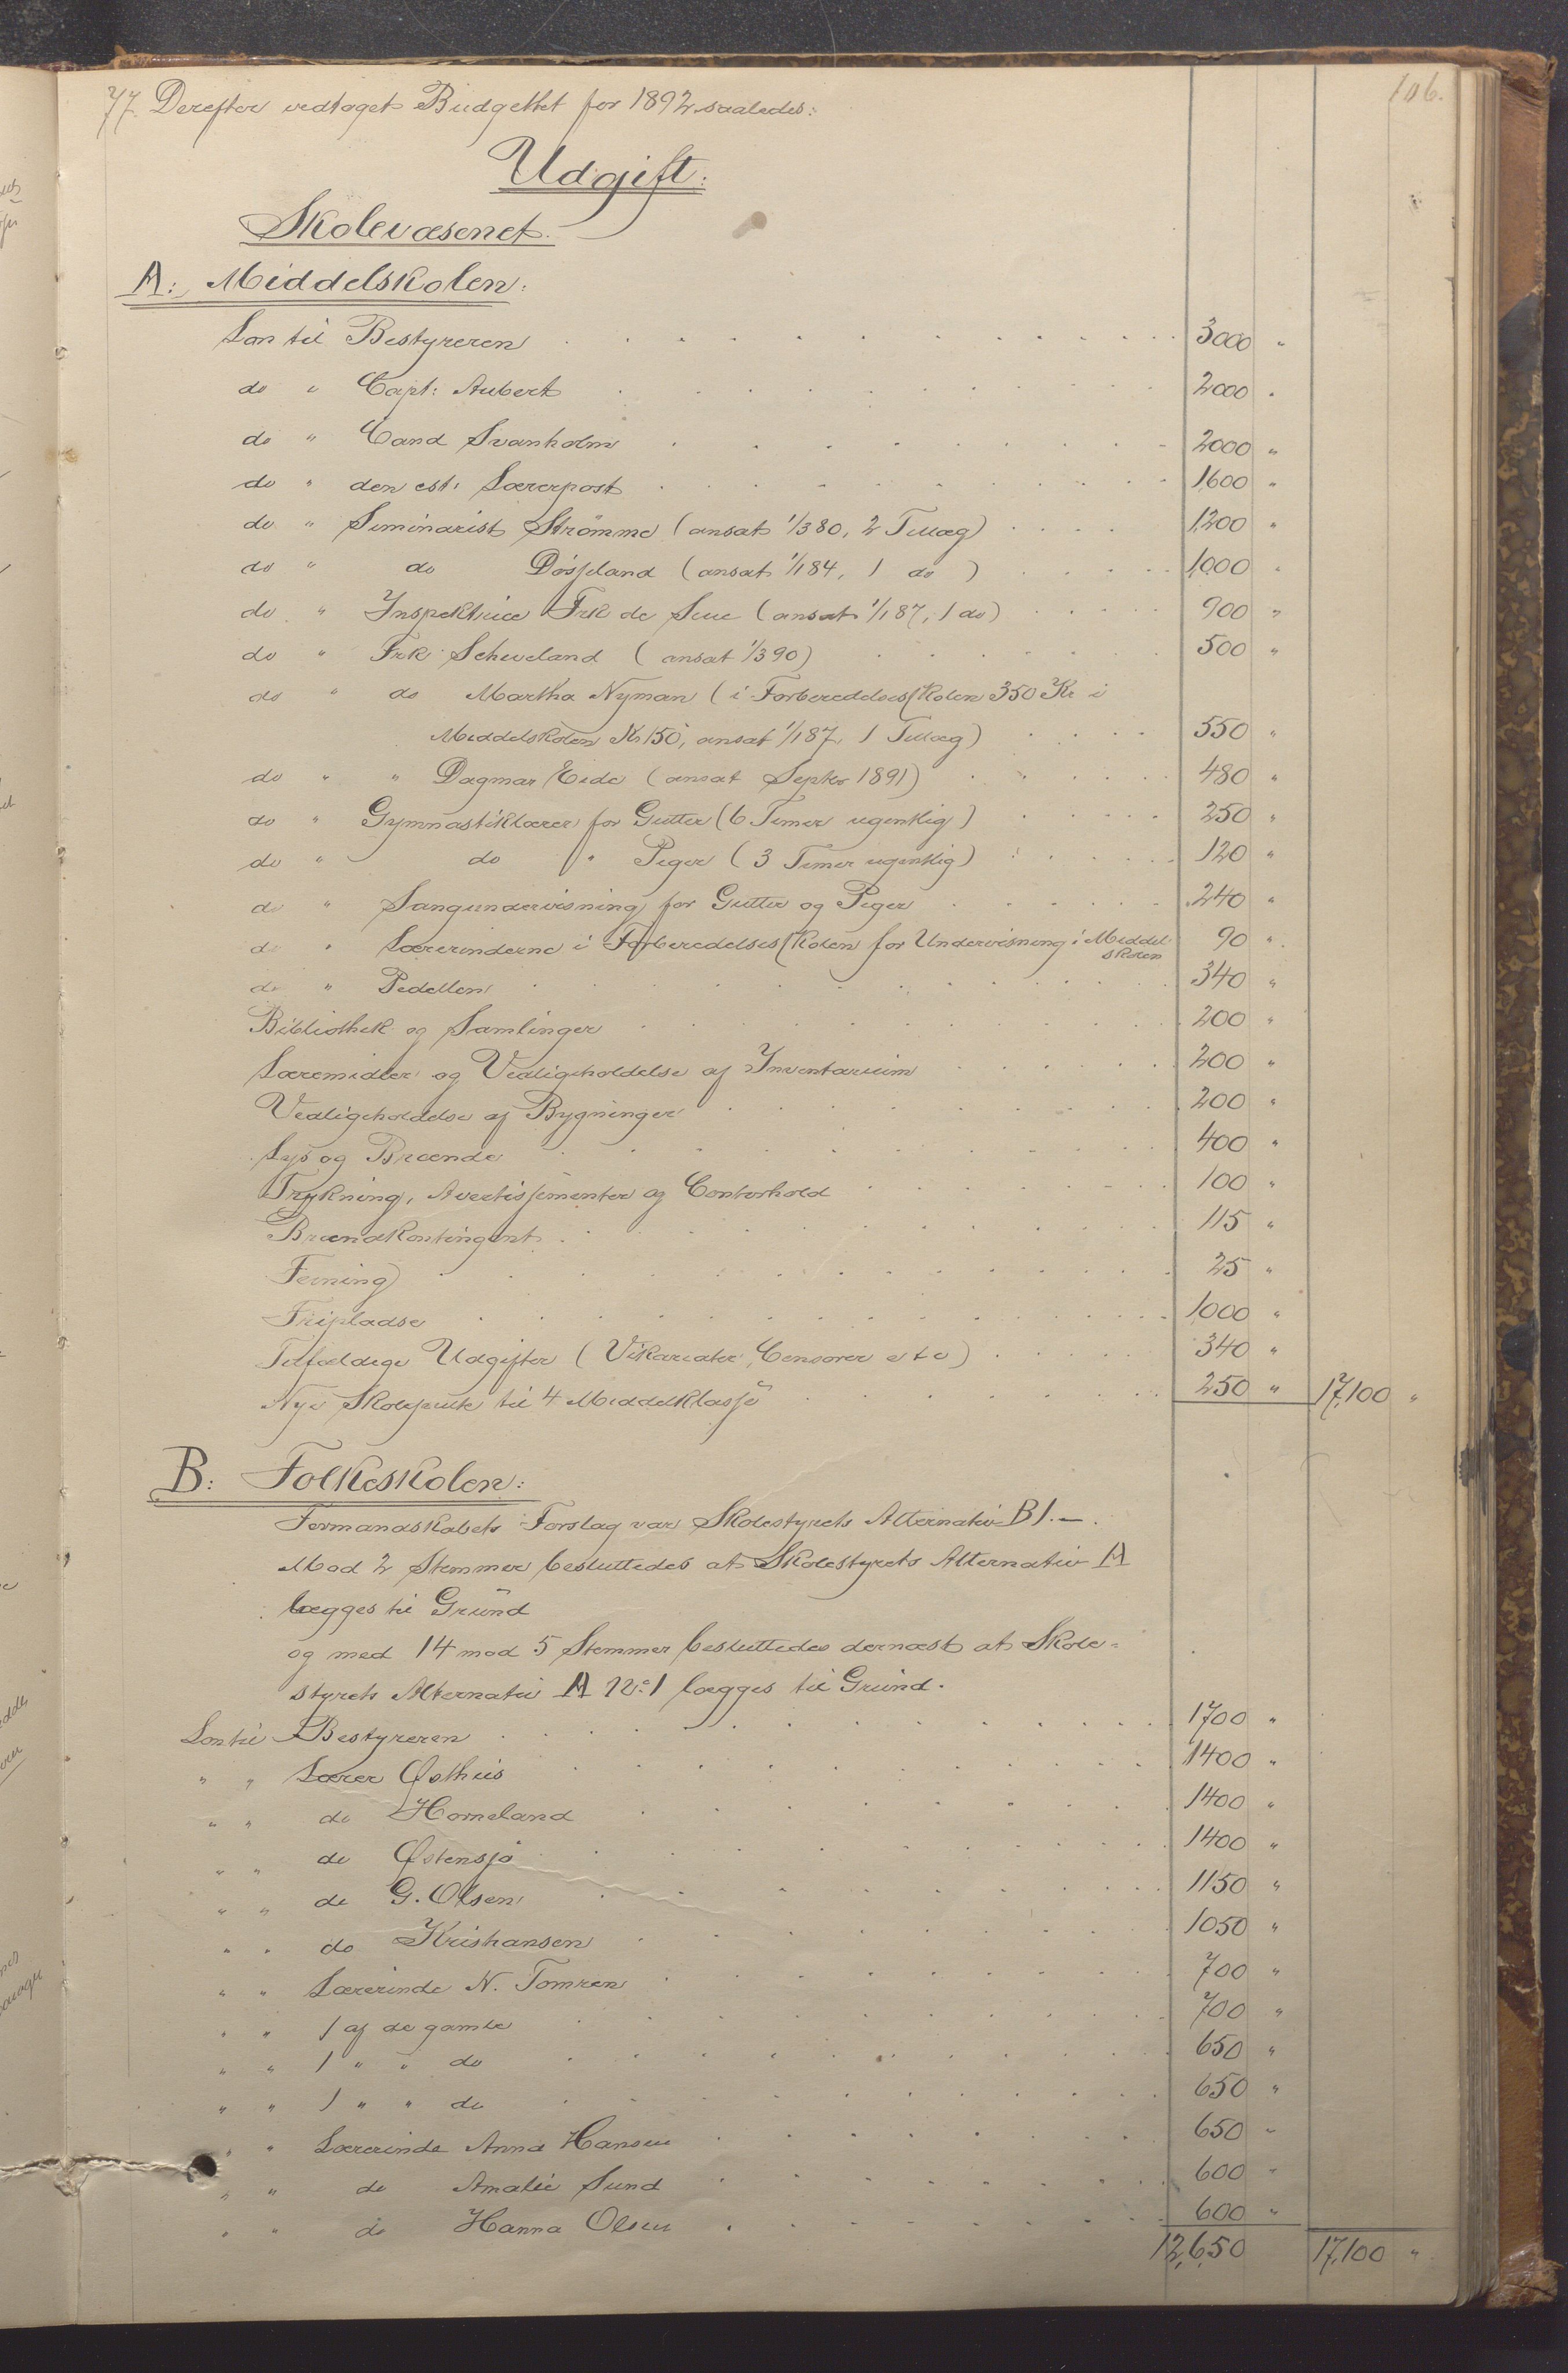 106.
77. Derefter vedtoges Budgettet for 1892 saaledes:
Udgift:
Skolevæsenet.
A: Middelskolen:
Løn til Bestyreren 3000 "
do " Capt: Aubert 2000 "
do " Cand Svanholm 2000 "
do " den est: Lærerpost 1600 "
do " Seminarist Strømme (ansat 1/3 80, 2 Tillæg) 1200 "
do " do Døsjeland (ansat 1/1 84, 1 do) 1000 "
do " Inspektrice Frk de Seue (ansat 1/1 87, 1 do) 900 "
do " Frk Scheveland (ansat 1/3 90) 500 "
do " do Martha Nyman (i Forberedelsesskolen 350 Kr i
Middelskolen Kr 150, ansat 1/1 87, 1 Tillæg) 550 "
do " " Dagmar Eide (ansat Septbr 1891) 480 "
do " Gymnastiklærer for Gutter (6 Timer ugentlig) 250 "
do " do " Piger (3 Timer ugentlig) 120 "
do " Sangundervisning for Gutter og Piger 240 "
do " Lærerinderne i Forberedelsesskolen for Undervisning i Middelskolen 90 "
do " Pedellen 340 "
Bibliothek og Samlinger 200 "
Læremidler og Vedligeholdelse af Inventarium 200 "
Vedligeholdelse af Bygninger 200 "
Lys og Brænde 400 "
Trykning, Avertissementer og Contorhold 100 "
Brandkontingent 115 "
Feining 25 "
Fripladse 1000 "
Tilfældige Udgifter (Vikariater, Censorer etc) 340 "
Nye Skolepulte til 4 Middelklasse 250 " 17,100 "
B: Folkeskolen:
Formandskabets Forslag var Skolestyrets Alternativ B 1.—.
Mod 2 Stemmer besluttedes at Skolestyrets Alternativ A
lægges til Grund
og med 14 mod 5 Stemmer besluttedes dernæst at Skole-
styrets Alternativ A No 1 lægges til Grund.
Løn til Bestyreren 1700 "
" " Lærer Østhus 1400 "
" " do Homeland 1400 "
" " do Østensjø 1400 "
" " do G. Olsen 1150 "
" " do Kristiansen 1050 "
" " Lærerinde N. Tomren 700 "
" " 1 af de gamle 700 "
" " 1 " " do 650 "
" " 1 " " do 650 "
" " Lærerinde Anna Hansen 650 "
" " do Amalie Sund 600 "
" " do Hanna Olsen 600 "
12,650 17,100 "